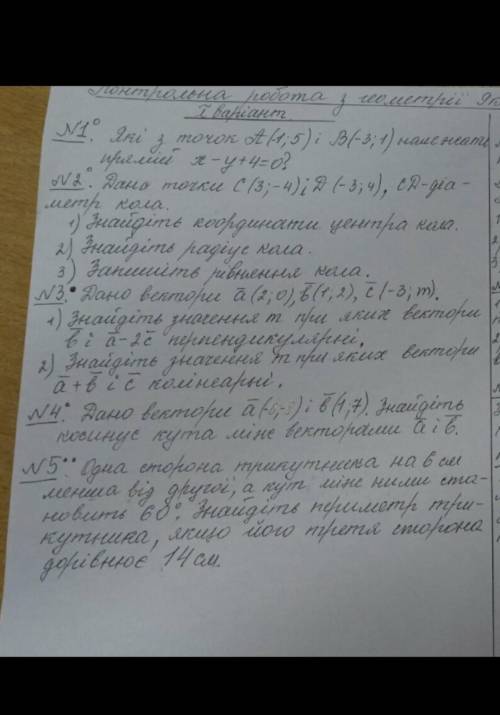 Контрольна робота з геометрії
I варіант
№1° Які з точок A(-1; 5) і B(-3; 1) належать
прямій x-y+4=0?
№2° Дано точки C(3;-4) і D(-3;4), CD-діа-
метр кола.
1) Знайдіть координати центра кола.
2) Знайдіть радіус кола.
3) Запишіть рівняння кола.
№3.• Дано вектори a̅(2;0), b̅(1;2), c̅(-3;m).
1) Знайдіть значення m при яких вектори
b̅ і a̅-2c̅ перпендикулярні.
2) Знайдіть значення m при яких вектори
a̅+b̅ і c̅ колінеарні.
№4• Дано вектори a̅ і b̅(1;7). Знайдіть
косинус кута між векторами a̅ і b̅.
№5•• Одна сторона трикутника на 6 см
менша від другої, а кут між ними ста-
новить 60°. Знайдіть периметр три-
кутника, якщо його третя сторона
дорівнює 14 см.